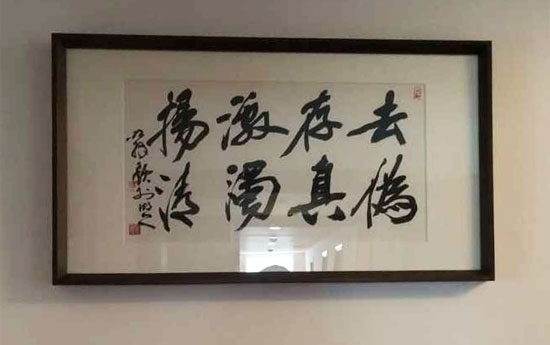 去偽
存真
激濁
揚清